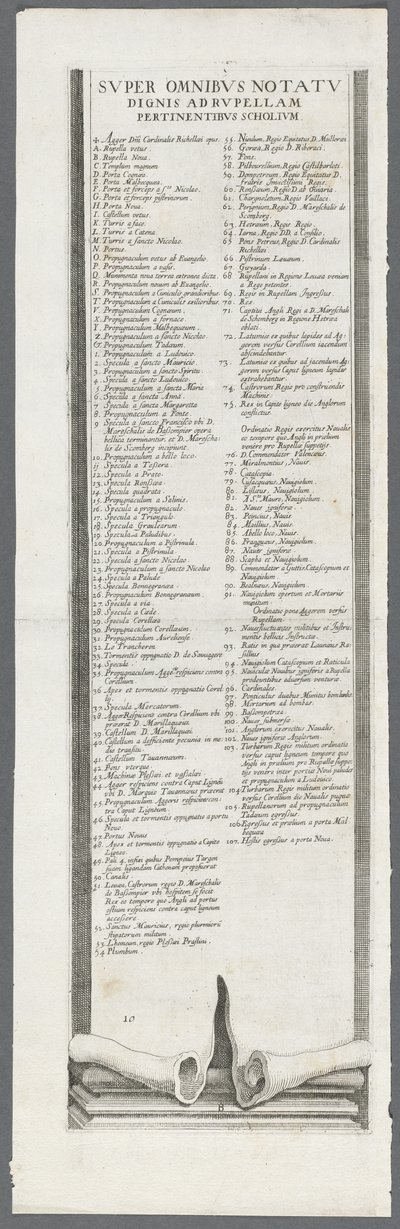 SVPER OMNIBVS NOTATV
DIGNIS AD RVPELLAM
PERTINENTIBVS SCHOLIVM
✠. Agger Dñi Cardinalis Richellai opus.
A. Rupella vetus.
B. Rupella Noua.
C. Templum magnum
D. Porta Cognea.
E. Porta Malbequea.
F. Porta et forceps a sto Nicolao.
G. Porta et forceps pistrinorum.
H. Porta Noua.
I. Castellum vetus.
K. Turris asiae.
L. Turris a Catena.
M. Turris a sancto Nicolao.
N. Portus.
O. Propugnaculum vetus ab Euangelio
P. Propugnaculum a vasis.
Q. Munimenta noua terrea extranea dicta.
R. Propugnaculum nouum ab Euangelio.
S. Propugnaculum a Cuniculis grandioribus.
T. Propugnaculum a Cuniculis exilioribus.
V. Propugnaculum Cognæum.
X. Propugnaculum a fornace.
Y. Propugnaculum Malbequæum.
Z. Propugnaculum a sancto Nicolao
&. Propugnaculum Tadæum.
1. Propugnaculum a Ludouico.
2. Specula a sancto Mauricio
3. Propugnaculum a sancto Spiritu
4. Specula a sancto Ludouico.
5. Propugnaculum a sancta Maria
6. Specula a sancta Anna
7. Specula a sancta Margareta
8. Propugnaculum a Ponte.
9. Specula a sancto Francisco vbi D.
Mareschalis de Bassompier opera
bellica terminantur. et D. Marescha-
lis de Scomberg incipiunt.
10. Propugnaculum a bello loco.
ij. Specula a Tessera
12. Specula a Prato.
13. Specula Ronsæa.
14. Specula quadrata.
15. Propugnaculum a Salinis.
16. Specula a propugnaculo.
17. Specula a Triangulo
18. Specula Graulearum
19. Specula a Paludibus
20. Propugnaculum a Pistrinula.
21. Specula a Pistrinula
22. Specula a sancto Nicolao.
23. Propugnaculum a sancto Nicolao
24. Specula a Palude
25. Specula Bonagranea.
26. Propugnaculum Bonagranaum.
27. Specula a via
28. Specula a Cæde
29. Specula Corellæa
30. Propugnaculum Corellæum.
31. Propugnaculum Aureliense
32. Le Trancheron
33. Tormentis oppugnatio D. de Sauuiggere
34. Specula
35. Propugnaculum Aggeris respiciens contra
Corellum.
36. Apex et tormentis oppugnatio Corel-
li.
37. Specula Mercatorum.
38. Agger Respiciens contra Corellum vbi
præerat D. Marillaquus.
39. Castellum D. Marillaquai
40. Castellum a deficiente pecunia in me-
dio transitu.
41. Castellum Tauannæum.
42. Fons vterque
43. Machinæ Plessæi et vassalæi
44. Agger respiciens contra Caput Ligneū
vbi D. Marquis Tauannaus præerat
45. Propugnaculum Aggeris respiciens con-
tra Caput Ligneum.
46. Specula et tormentis oppugnatio a portu
Nouo
47. Portus Nouus
48. Apex et tormentis oppugnatio a Capite
Ligneo
49. Pali 4. infixi quibus Pompeius Targon
suam ligandam Cathenam proposuerat
50. Canalis.
51. Leuau, Castrorum regio D. Mareschalis
de Bassompier vbi hospitem se fecit
Rex eo tempore quo Angli ad portus
ostium respiciens contra caput ligneum
accessere.
52. Sanctus Mauricius, regio plurmierii
stipatorum militum.
53. L'homeum, regio Plessæi Praslini.
54. Plumbum.
55. Nundum, Regio Equitatus D. Maillorai
56. Goræa, Regio D. Riberaci.
57. Pons.
58. Pilboureellium, Regio Castilbarloti.
59. Dompetreum, Regio Equitatus D.
fratris Inuictissimi Regis.
60. Ronsaium, Regio D. ab Oenaria.
61. Chargnoletum, Regio Vaillaci.
62. Perignium, Regio D. Mareschalis de
Scomberg.
63. Hetræum, Regis Regio.
64. Iarna, Regio DD. a Consilio.
65. Pons Petreus, Regio D. Cardinalis
Richellai
66. Pistrinum Lauaum.
67. Guyarda.
68. Rupellani in Regione Leuaa veniam
a Rege petentes.
69. Regis in Rupellam Ingressus
70. Rex
71. Captiui Angli Regi a D. Mareschali
de Schomberg in Regione Hetræa
oblati.
72. Latumiæ ex quibus lapides ad Ag-
gerem versus Corellum iaciendum
abscindebantur.
73. Latumiæ ex quibus ad faciendum Ag-
gerem versus Caput ligneum lapides
extrahebantur.
74. Castrorum Regio pro construendis
Machinis.
75. Rex in Capite ligneo die Anglorum
conflictus.
Ordinatio Regis exercitus Naualis
eo tempore quo Angli in prælium
venere pro Rupellæ suppetijs.
76. D. Commendator Valencæus.
77. Miralmontius, Nauis.
78. Catascopia.
79. Cusacquæus, Nauigiolum.
80. Lislatus, Nauigiolum.
81. A Sto Mauro, Nauigiolum.
82. Naues igniferæ
83. Poincius, Nauis.
84. Maillius, Nauis.
85. Abello loco, Nauis.
86. Fraguæus, Nauigiolum.
87. Nauis ignifera
88. Scapha et Nauigiolum.
89. Commendator a Guttis Catascopium et
Nauigium
90. Beaulæus, Nauigium.
91. Nauigiolum, apertum et Mortarijs
munitum.
Ordinatio pone Aggerem versus
Rupellam.
92. Naues fluctuantes militibus et Instru-
mentis bellicis Instructæ.
93. Ratis in qua præerat Launæus Ra-
sillius
94. Nauigiolum Catascopium et Raticula
95. Nauiculæ Nauibus igniferis a Rupella
prodeuntibus aduersum venturæ.
96. Cardinales.
97. Ponticulus duabus Munitus bombardis.
98. Mortarium ad bombas.
99. Bassompetræa.
100. Naues submersæ
101. Anglorum exercitus Naualis.
102. Naues igniferæ Anglorum.
103. Turbarum Regis militum ordinatio
versus caput ligneum tempore quo
Angli in prælium pro Rupellæ suppe-
tijs venere inter portus Noui paludes
et propugnaculum a Ludouico.
104. Turbarum Regis militum ordinatio
versus Corellum die Naualis pugnæ
105. Rupellanorum ad propugnaculum
Tadæum egressus.
106. Egressus et prælium a porta Mal-
bequæa
107. Hostis egressus a porta Noua.
10
B